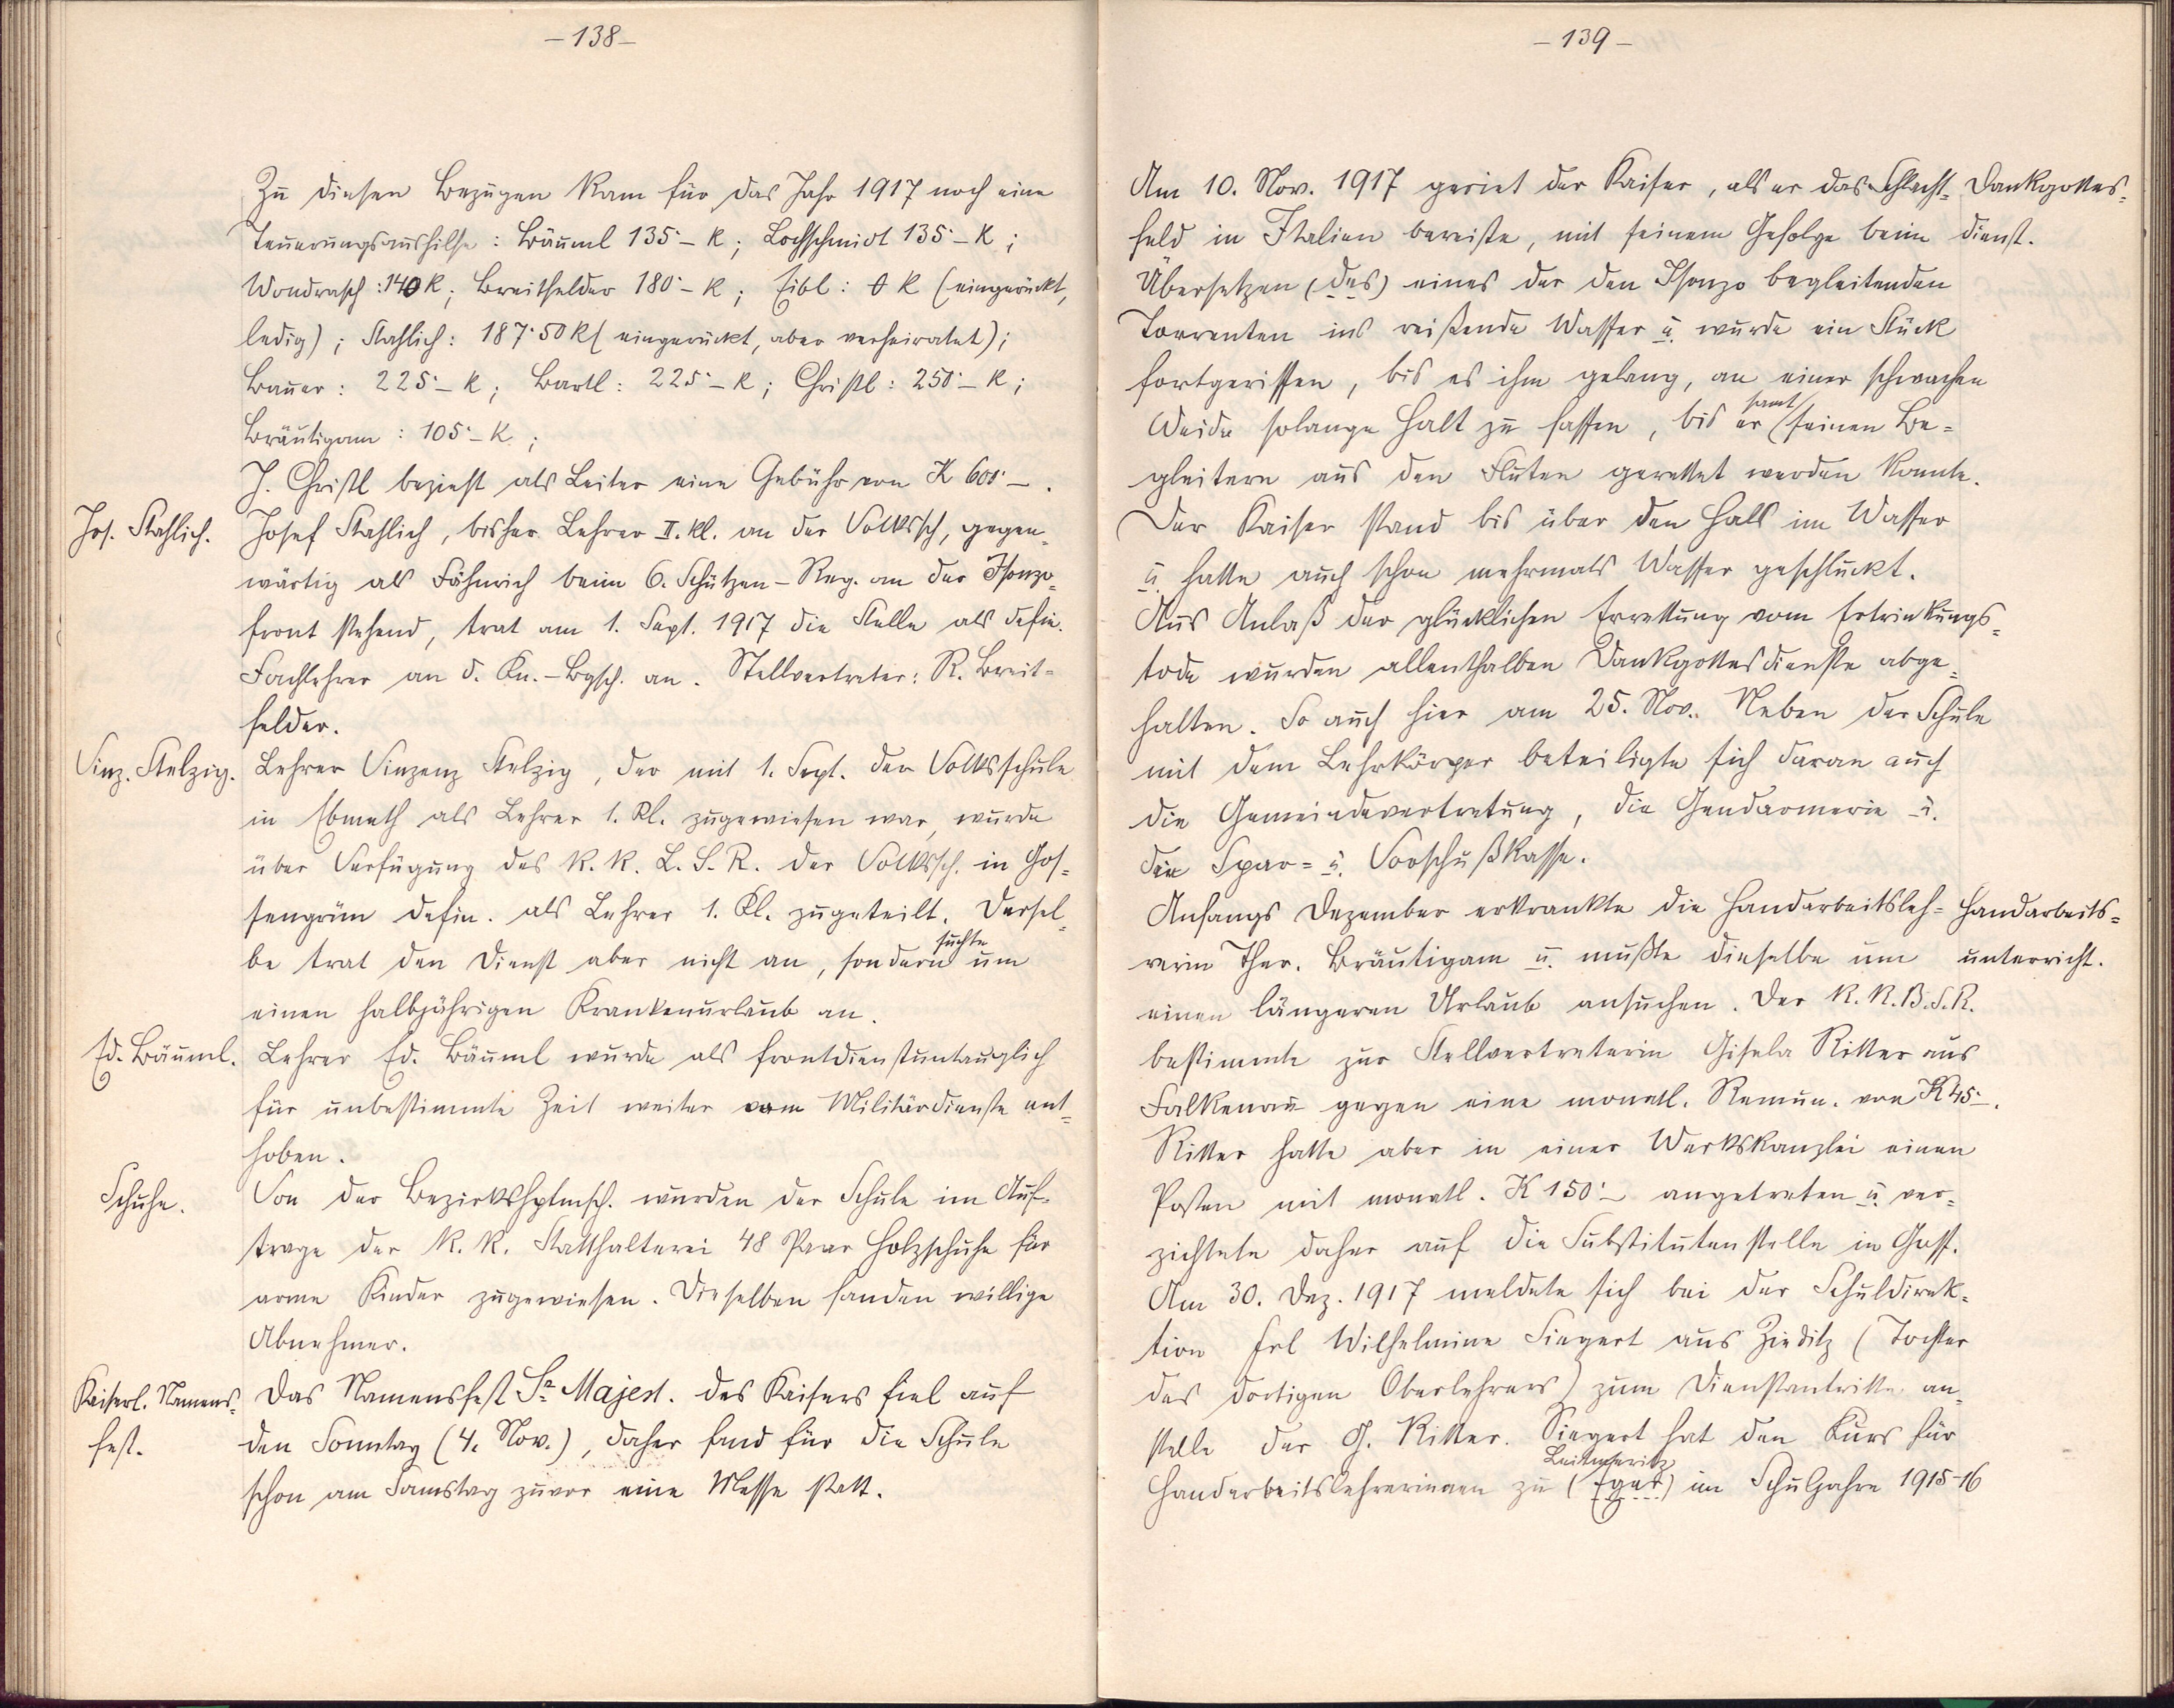 –138–
Zu diesen Bezügen kam für das Jahr 1917 noch eine
Teuerungsaushilfe: Bäuml 135·– K; Lochschmidt 135·– K;
Wondrasch: 140 K; Breitfelder 180·– K; Eibl: 0 K (eingerückt,
ledig); Stahlich: 187·50 K (eingerückt, aber verheiratet);
Bauer: 225·– K; Bartl: 225·– K; Christl: 250·– K;
Bräutigam: 105·– K;
J. Christl bezieht als Leiter eine Gebühr von K 600·–.
Jos. Stahlich.
Josef Stahlich, bisher Lehrer II. kl. an der Volkssch, gegen=
wärtig als Fähnrich beim 6. Schützen-Reg. an der Isonzo=
front stehend, trat am 1. Sept. 1917 die Stelle als defin.
Fachlehrer an d. Kn.-Bgsch. an. Stellvertreter: R. Breit=
felder.
Vinz. Stelzig.
Lehrer Vinzenz Stelzig, der mit 1. Sept. der Volksschule
in Ebmeth als Lehrer 1. Kl. zugewiesen war, wurde
über Verfügung des k. k. L. S. R. der Volkssch. in Gos=
sengrün defin. als Lehrer 1. Kl. zugeteilt. Dersel=
be trat den Dienst aber nicht an, sondern suchte um
einen halbjährigen Krankenurlaub an.
Ed. Bäuml.
Lehrer Ed. Bäuml wurde als frontdienstuntauglich
für unbestimmte Zeit weiter vom Militärdienste ent=
hoben.
Schuhe.
Von der Bezirkshptmsch. wurden der Schule im Auf=
trage der k. k. Statthalterei 48 Paar Holzschuhe für
arme Kinder zugewiesen. Dieselben fanden willige
Abnehmer.
Kaiserl. Namens=
fest.
Das Namensfest Sr. Majest. des Kaisers fiel auf
den Sonntag (4. Nov.), daher fand für die Schule
schon am Samstag zuvor eine Messe statt.
–139–
Am 10. Nov. 1917 geriet der Kaiser, als er das Schlacht=
feld in Italien bereiste, mit seinem Gefolge beim
Übersetzen (des) eines der den Isonzo begleitenden
Torrenten ins reißende Wasser u. wurde ein Stück
fortgerissen, bis es ihm gelang, an einer schwachen
Weide solange Halt zu fassen, bis er samt seinen Be=
gleitern aus den Fluten gerettet werden konnte.
Der Kaiser stand bis über den Hals im Wasser
u. hatte auch schon mehrmals Wasser geschluckt.
Aus Anlaß der glücklichen Errettung vom Ertrinkungs=
tode wurden allenthalben Dankgottesdienste abge=
halten. So auch hier am 25. Nov. Neben der Schule
mit dem Lehrkörper beteiligte sich daran auch
die Gemeindevertretung, die Gendarmerie u.
die Spar= u. Vorschußkasse.
Dankgottes=
dienst.
Anfangs Dezember erkrankte die Handarbeitsleh=
rerin Ther. Bräutigam u. mußte dieselbe um
einen längeren Urlaub ansuchen. Der k. k. B. S. R.
bestimmte zur Stellvertreterin Gisela Ritter aus
Falkenau gegen eine monatl. Remun. von K 45·–.
Ritter hatte aber in einer Werkskanzlei einen
Posten mit monatl. K 150·– angetreten u. ver=
zichtete daher auf die Substitutenstelle in Goss.
Am 30. Dez. 1917 meldete sich bei der Schuldirek=
tion Frl Wilhelmine Siegert aus Zieditz (Tochter
des dortigen Oberlehrers) zum Dienstantritte an=
stelle der G. Ritter. Siegert hat den Kurs für
Handarbeitslehrerinnen zu (Eger) Leitmeritz im Schuljahre 1915-16
Handarbeits=
unterricht.